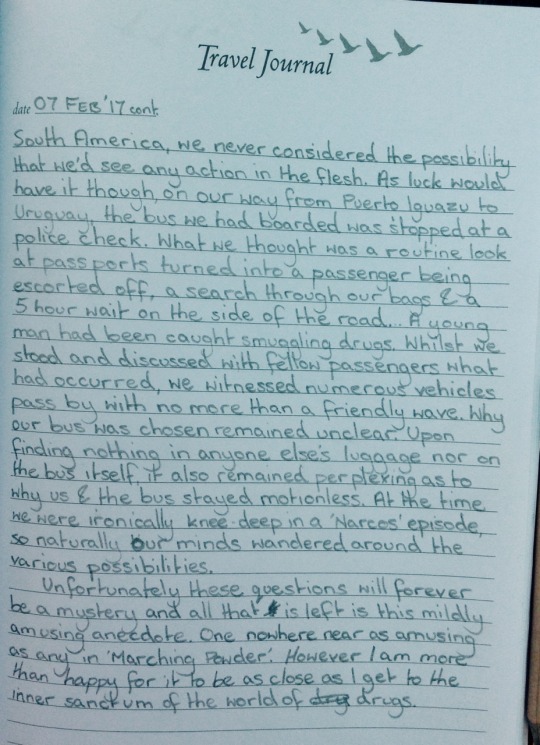 Travel Journal
date 07 FEB '17 cont.
South America, we never considered the possibility
that we'd see any action in the flesh. As luck would
have it though, on our way from Puerto Iguazu to
Uruguay, the bus we had boarded was stopped at a
police check. What we thought was a routine look
at passports turned into a passenger being
escorted off, a search through our bags & a
5 hour wait on the side of the road... A young
man had been caught smuggling drugs. Whilst we
stood and discussed with fellow passengers what
had occurred, we witnessed numerous vehicles
pass by with no more than a friendly wave. Why
our bus was chosen remained unclear. Upon
finding nothing in anyone else's luggage nor on
the bus itself, it also remained perplexing as to
why us & the bus stayed motionless. At the time
we were ironically knee-deep in a 'Narcos' episode,
so naturally our minds wandered around the
various possibilities.
Unfortunately these questions will forever
be a mystery and all that is left is this mildly
amusing anecdote. One nowhere near as amusing
as any in 'Marching Powder'. However I am more
than happy for it to be as close as I get to the
inner sanctum of the world of drug drugs.